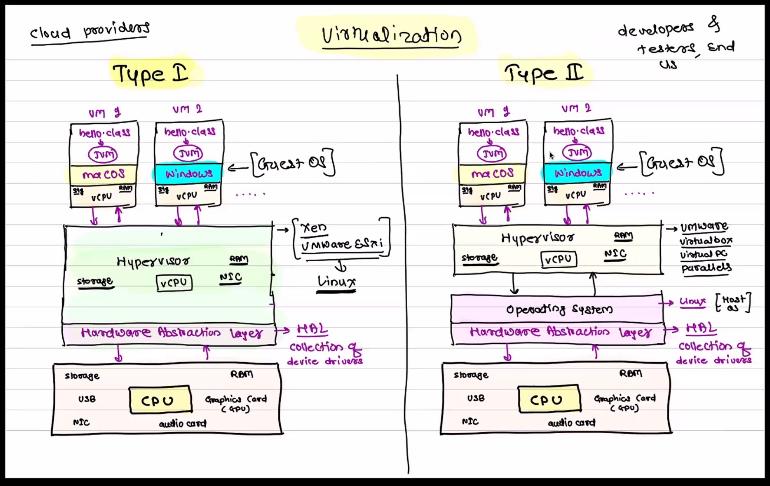 Cloud providers
Virtualization
developers &
testers, End
us
Type I
VM 1
VM 2
hello.class
hello.class
JVM
JVM
macOS
Windows
[Guest OS]
RAM
RAM
vCPU
vCPU
.....
Hypervisor
RAM
Storage
vCPU
NIC
Xen
VMware ESXi
Linux
Hardware Abstraction Layer
HAL
collection of
device drivers
Storage
RAM
USB
CPU
Graphics Card
(GPU)
NIC
audio card
Type II
VM 1
VM 2
hello.class
hello.class
JVM
JVM
macOS
Windows
[Guest OS]
RAM
RAM
vCPU
vCPU
.....
Hypervisor
RAM
Storage
vCPU
NIC
VMware
virtualbox
virtual PC
parallels
Operating System
Linux [Host
OS]
Hardware Abstraction Layer
HAL
collection of
device drivers
Storage
RAM
USB
CPU
Graphics Card
(GPU)
NIC
audio card